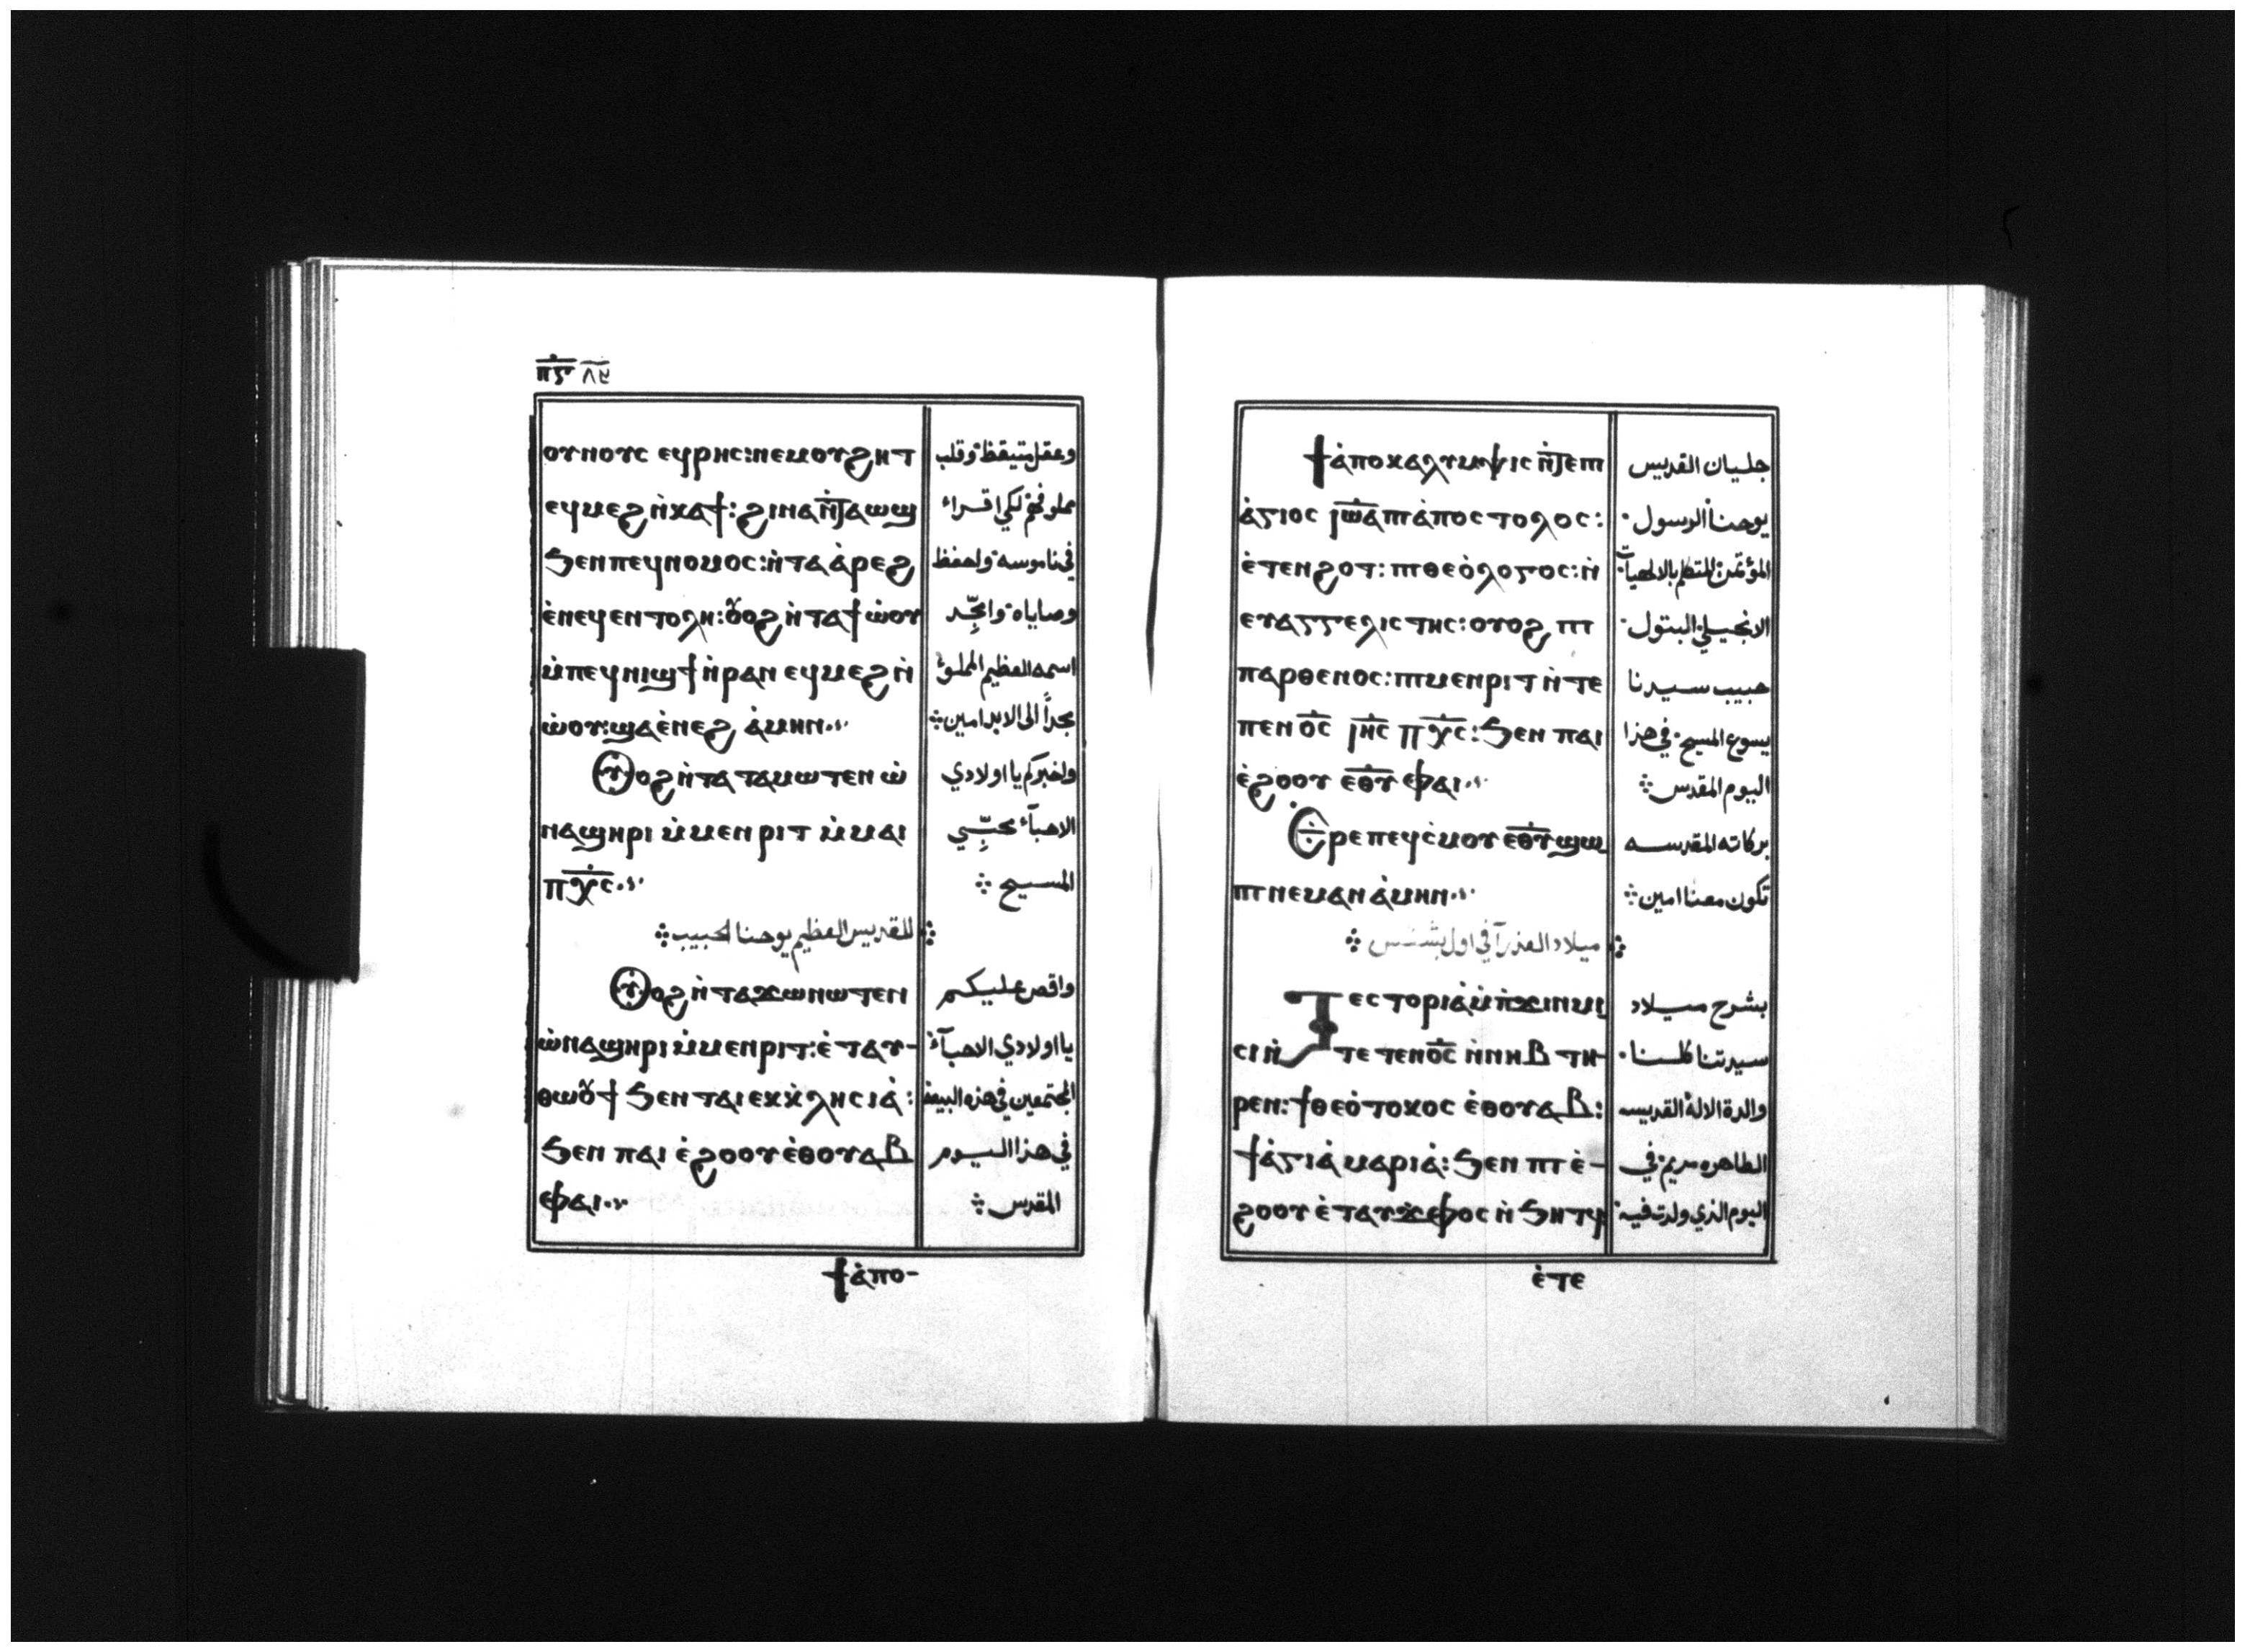 ⲡ̅ⲍ̅ ٨٧
ⲟⲩⲛⲟⲩⲥ ⲉϥⲣⲏⲥ:ⲛⲉⲙⲟⲩϩⲏⲧ وعقل متيقظ وقلب
ⲉϥⲙⲉϩ ⲛ̀ⲕⲁϯ: ϩⲓⲛⲁ ⲛ̀ⲧⲁⲱϣ مملو فهم لكي اقراء
ϧⲉⲛ ⲡⲉϥⲛⲟⲙⲟⲥ:ⲛ̀ⲧⲁⲁ̀ⲣⲉϩ في ناموسه ولحفظ
ⲉ̀ⲛⲉϥⲉⲛⲧⲟⲗⲏ:ⲟⲩⲟϩ ⲛ̀ⲧⲁϯⲱ̀ⲟⲩ وصاياه وامجّد
ⲙ̀ⲡⲉϥⲛⲓϣϯ ⲛ̀ⲣⲁⲛ ⲉϥⲙⲉϩ ⲛ̀ اسمه العظيم المملؤ
ⲱ̀ⲟⲩ:ϣⲁⲉ̀ⲛⲉϩ ⲁ̀ⲙⲏⲛ مجداً الى الابد امين
ⲟⲩⲟϩ ⲛ̀ⲧⲁ ⲧⲁⲙⲱⲧⲉⲛ ⲱ̀ ولخبركم يا اولادي
ⲛⲁϣⲏⲣⲓ ⲙ̀ⲙⲉⲛⲣⲓⲧ ⲙ̀ⲙⲁⲓ الاحبآء محبّي
ⲡ̅ⲭ̅ⲥ̅ المسيح
للقديس العظيم يوحنا الحبيب
ⲟⲩⲟϩ ⲛ̀ⲧⲁϫⲱⲛⲱⲧⲉⲛ واقص عليكم
ⲱ̀ⲛⲁϣⲏⲣⲓ ⲙ̀ⲙⲉⲛⲣⲓⲧ:ⲉ̀ⲧⲁⲩ- يا اولادي الاحبآء
ⲑⲱⲟⲩϯ ϧⲉⲛ ⲧⲁⲓⲉⲕⲕ̀ⲗⲏⲥⲓⲁ̀: المجتمعين في هذه البيعه
ϧⲉⲛ ⲡⲁⲓ ⲉ̀ϩⲟⲟⲩ ⲉ̀ⲑⲟⲩⲁⲃ في هذا اليوم
ⲉⲫⲁⲓ المقدس
ϯⲁ̀ⲡⲟ-
ϯⲁ̀ⲡⲟⲕⲁⲗⲩⲙⲯⲓⲥ ⲛ̀ⲧⲉⲡⲓ جليان القديس
ⲁ̀ⲅⲓⲟⲥ ⲓⲱ̅ⲁ ⲡⲓⲁ̀ⲡⲟⲥⲧⲟⲗⲟⲥ: يوحنا الرسول
ⲉ̀ⲧⲉⲛϩⲟⲧ:ⲡⲓⲑⲉⲟ̀ⲗⲟⲅⲟⲥ:ⲛ̀ المؤتمن المتكلم بالالهيات
ⲉⲩⲁⲅⲅⲉⲗⲓⲥⲧⲏⲥ:ⲟⲩⲟϩ ⲡⲓ الانجيلي البتول
ⲡⲁⲣⲑⲉⲛⲟⲥ:ⲡⲓⲙⲉⲛⲣⲓⲧ ⲛ̀ⲧⲉ حبيب سيدنا
ⲡⲉⲛⲟ̅ⲥ̅ ⲓ̅ⲏ̅ⲥ̅ ⲡ̅ⲭ̅ⲥ̅:ϧⲉⲛ ⲡⲁⲓ يسوع المسيح في هذا
ⲉ̀ϩⲟⲟⲩ ⲉ̅ⲑ̅ⲩ̅ ⲉⲫⲁⲓ اليوم المقدس
Ⲉⲣⲉ ⲡⲉϥⲥ̀ⲙⲟⲩ ⲉ̅ⲑ̅ⲩ̅ ϣⲱ بركاته المقدسه
ⲡⲓ ⲛⲉⲙⲁⲛ ⲁ̀ⲙⲏⲛ تكون معنا امين
ميلاد العذرآ في اول بشنس
Ⲧⲉⲥⲧⲟⲣⲓⲁ̀ ⲙ̀ⲡ̀ϫⲓⲛⲙⲓ بشرح ميلاد
ⲥⲓ ⲛ̀ⲧⲉ ⲧⲉⲛⲟ̅ⲥ̅ ⲛ̀ⲛⲏⲃ ⲧⲏ- سيدتنا كلنا
ⲣⲉⲛ:ϯⲑⲉⲟ̀ⲧⲟⲕⲟⲥ ⲉ̀ⲑⲟⲩⲁⲃ: والدة الالة القديسه
ϯⲁ̀ⲅⲓⲁ̀ ⲙⲁⲣⲓⲁ̀:ϧⲉⲛ ⲡⲓⲉ̀- الطاهره مريم في
ϩⲟⲟⲩ ⲉ̀ⲧⲁⲩϫⲉⲫⲟⲥ ⲛ̀ϧⲏⲧϥ اليوم الذي ولدت فيه
ⲉ̀ⲧⲉ